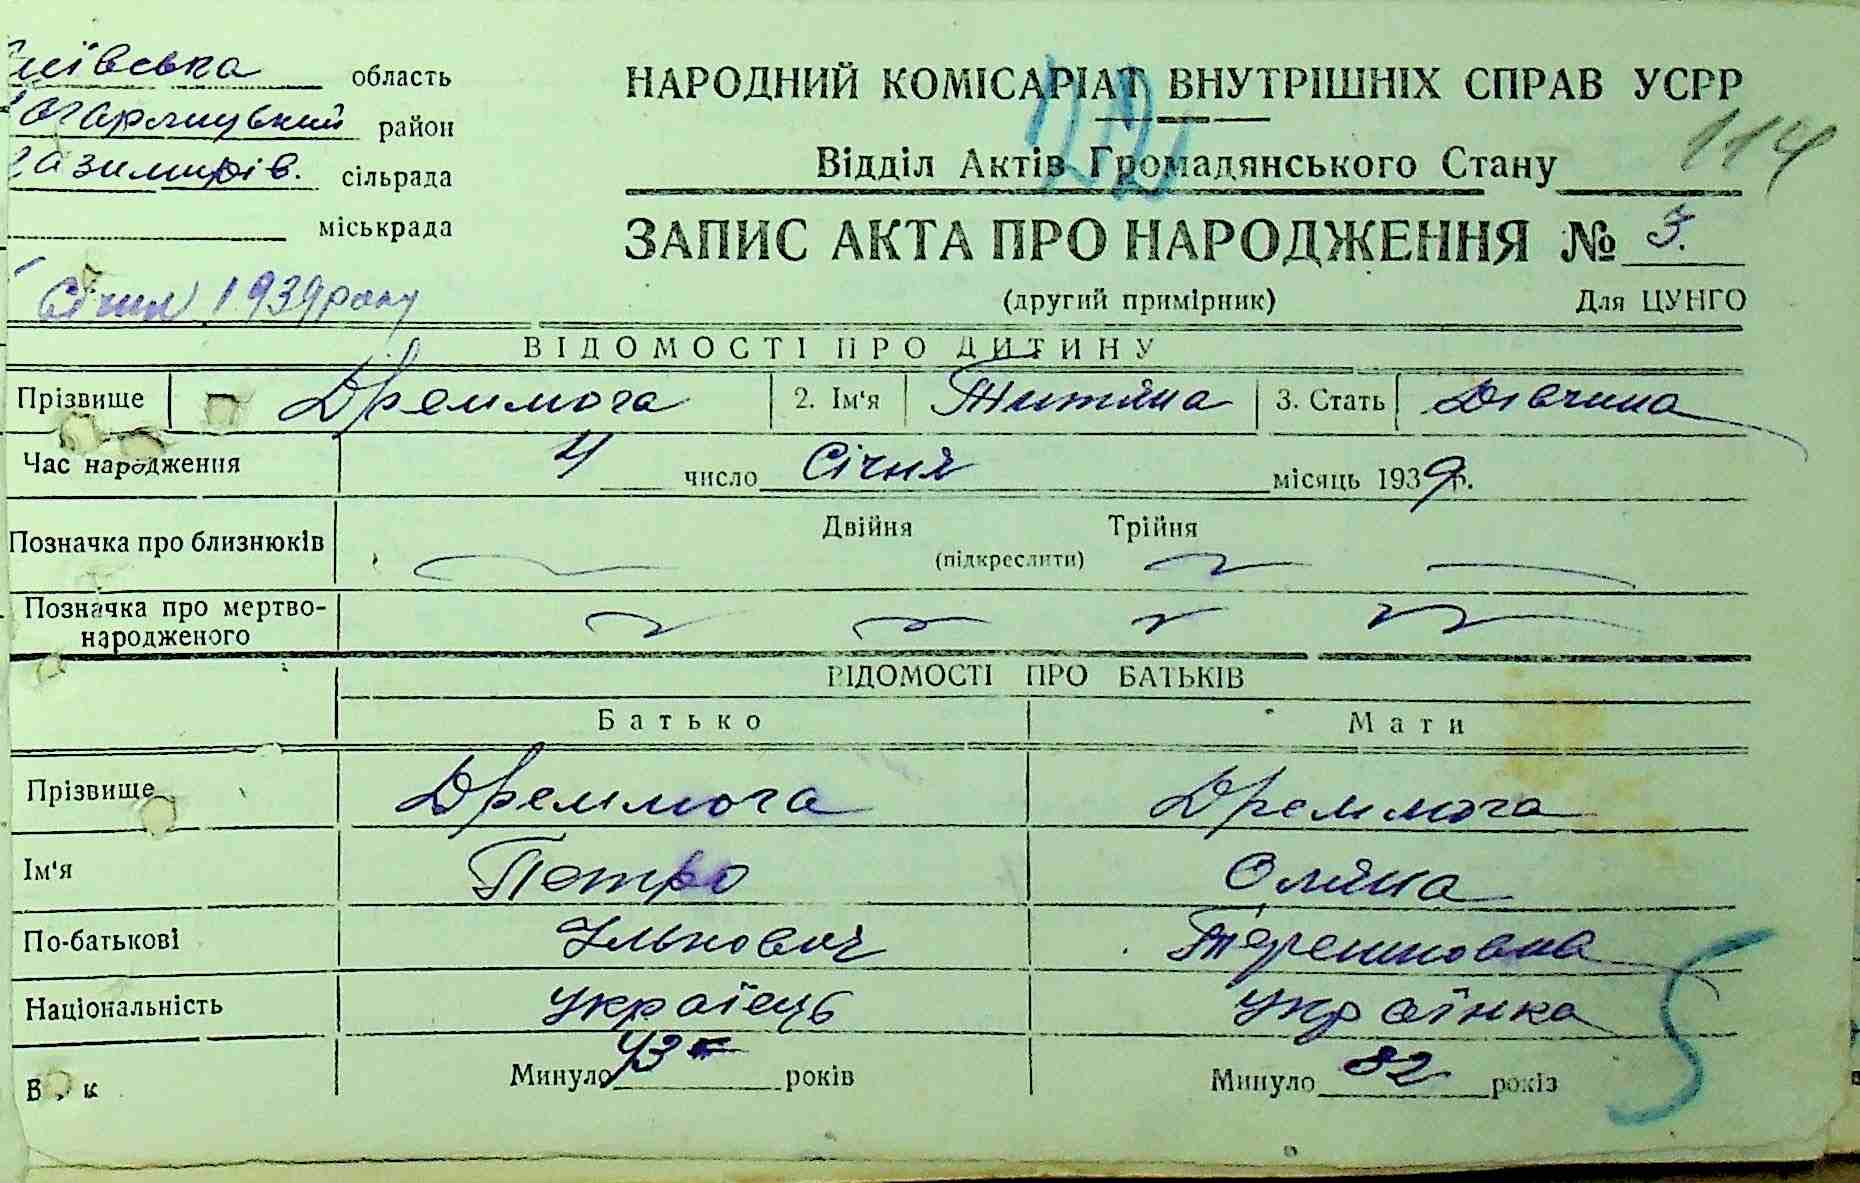 Київська область
Кагарлицький район
Казимирів. сільрада
міськрада
Січня 1939 року
НАРОДНИЙ КОМІСАРІАТ ВНУТРІШНІХ СПРАВ УСРР
122
114
Відділ Актів Громадянського Стану
ЗАПИС АКТА ПРО НАРОДЖЕННЯ № 3.
(другий примірник) Для ЦУНГО
ВІДОМОСТІ ПРО ДИТИНУ
Прізвище Дремлюга 2. Ім'я Титяна 3. Стать Дівчина
Час народження 4 число Січня місяць 1939 р.
Позначка про близнюків Двійня Трійня
(підкреслити)
Позначка про мертво-
народженого
ВІДОМОСТІ ПРО БАТЬКІВ
Батько Мати
Прізвище Дремлюга Дремлюга
Ім'я Петро Оляна
По-батькові Ількович Терешковна
Національність Українець Українка
Вік Минуло 43 років Минуло років
5